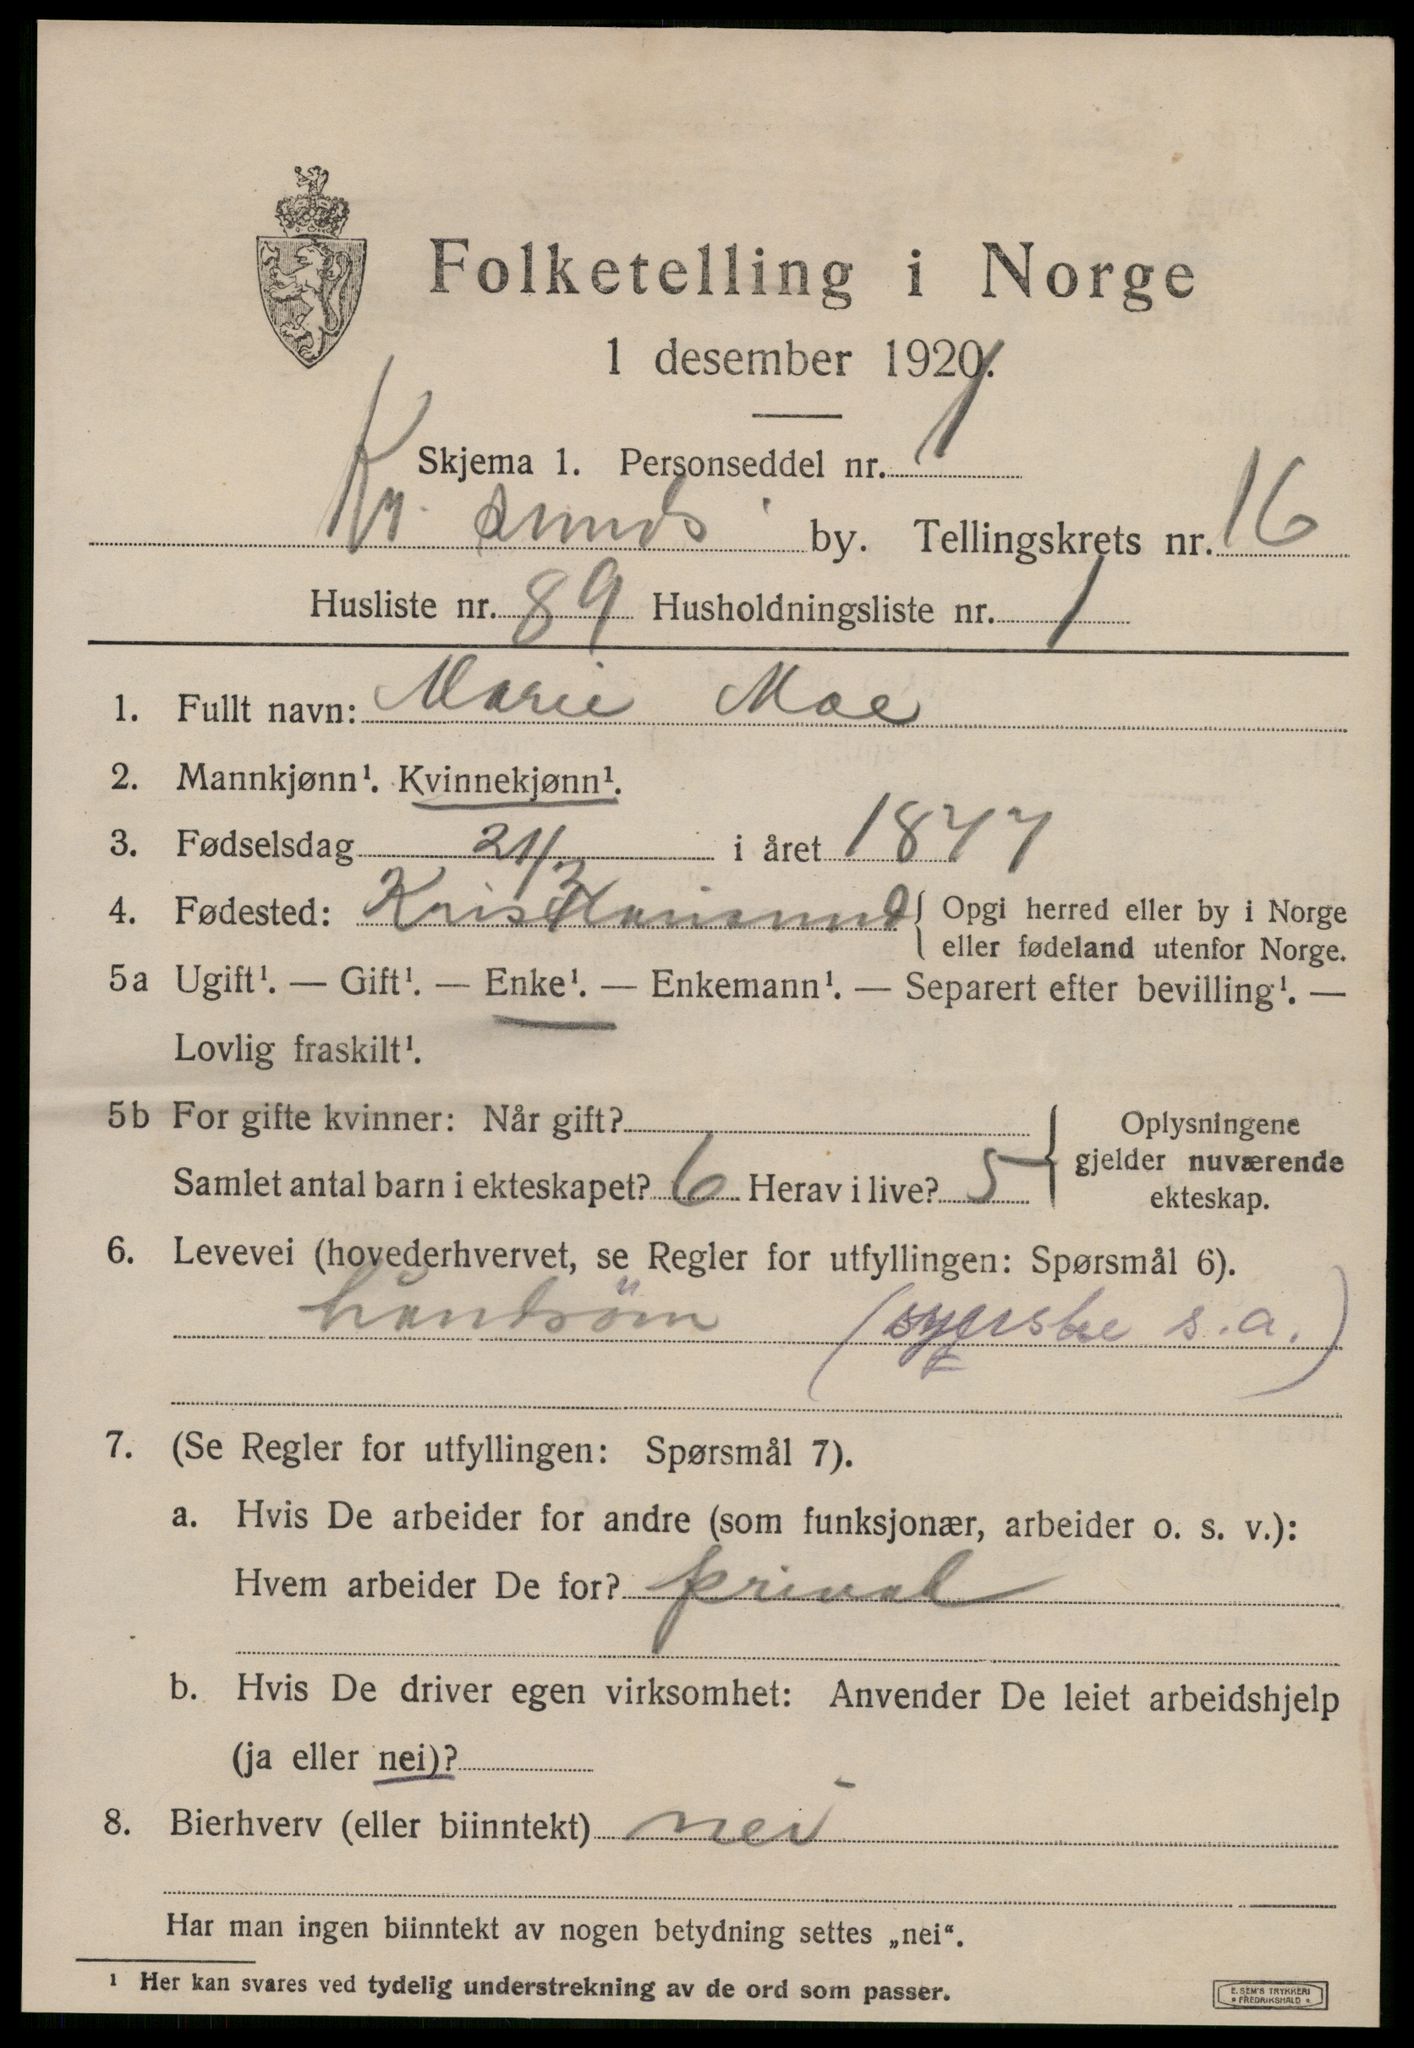 Folketelling i Norge
1 desember 1920.
Skjema 1. Personseddel nr. 1
Kr. sunds by. Tellingskrets nr. 16
Husliste nr. 89 Husholdningsliste nr. 1
1. Fullt navn: Marie Moe
2. Mannkjønn¹. Kvinnekjønn¹.
3. Fødselsdag 21/3 i året 1877
4. Fødested: Kristiansund { Opgi herred eller by i Norge
eller fødeland utenfor Norge.
5a Ugift¹. — Gift¹. — Enke¹. — Enkemann¹. — Separert efter bevilling¹. —
Lovlig fraskilt¹.
5b For gifte kvinner: Når gift?
Samlet antal barn i ekteskapet? 6 Herav i live? 5
} Oplysningene
gjelder nuværende
ekteskap.
6. Levevei (hovederhvervet, se Regler for utfyllingen: Spørsmål 6).
hantsøm (syerske s.a.)
7. (Se Regler for utfyllingen: Spørsmål 7).
a. Hvis De arbeider for andre (som funksjonær, arbeider o. s. v.):
Hvem arbeider De for? privat
b. Hvis De driver egen virksomhet: Anvender De leiet arbeidshjelp
(ja eller nei)?
8. Bierhverv (eller biinntekt) nei
Har man ingen biinntekt av nogen betydning settes „nei“.
¹ Her kan svares ved tydelig understrekning av de ord som passer.
E. SEM'S TRYKKERI
FREDRIKSHALD